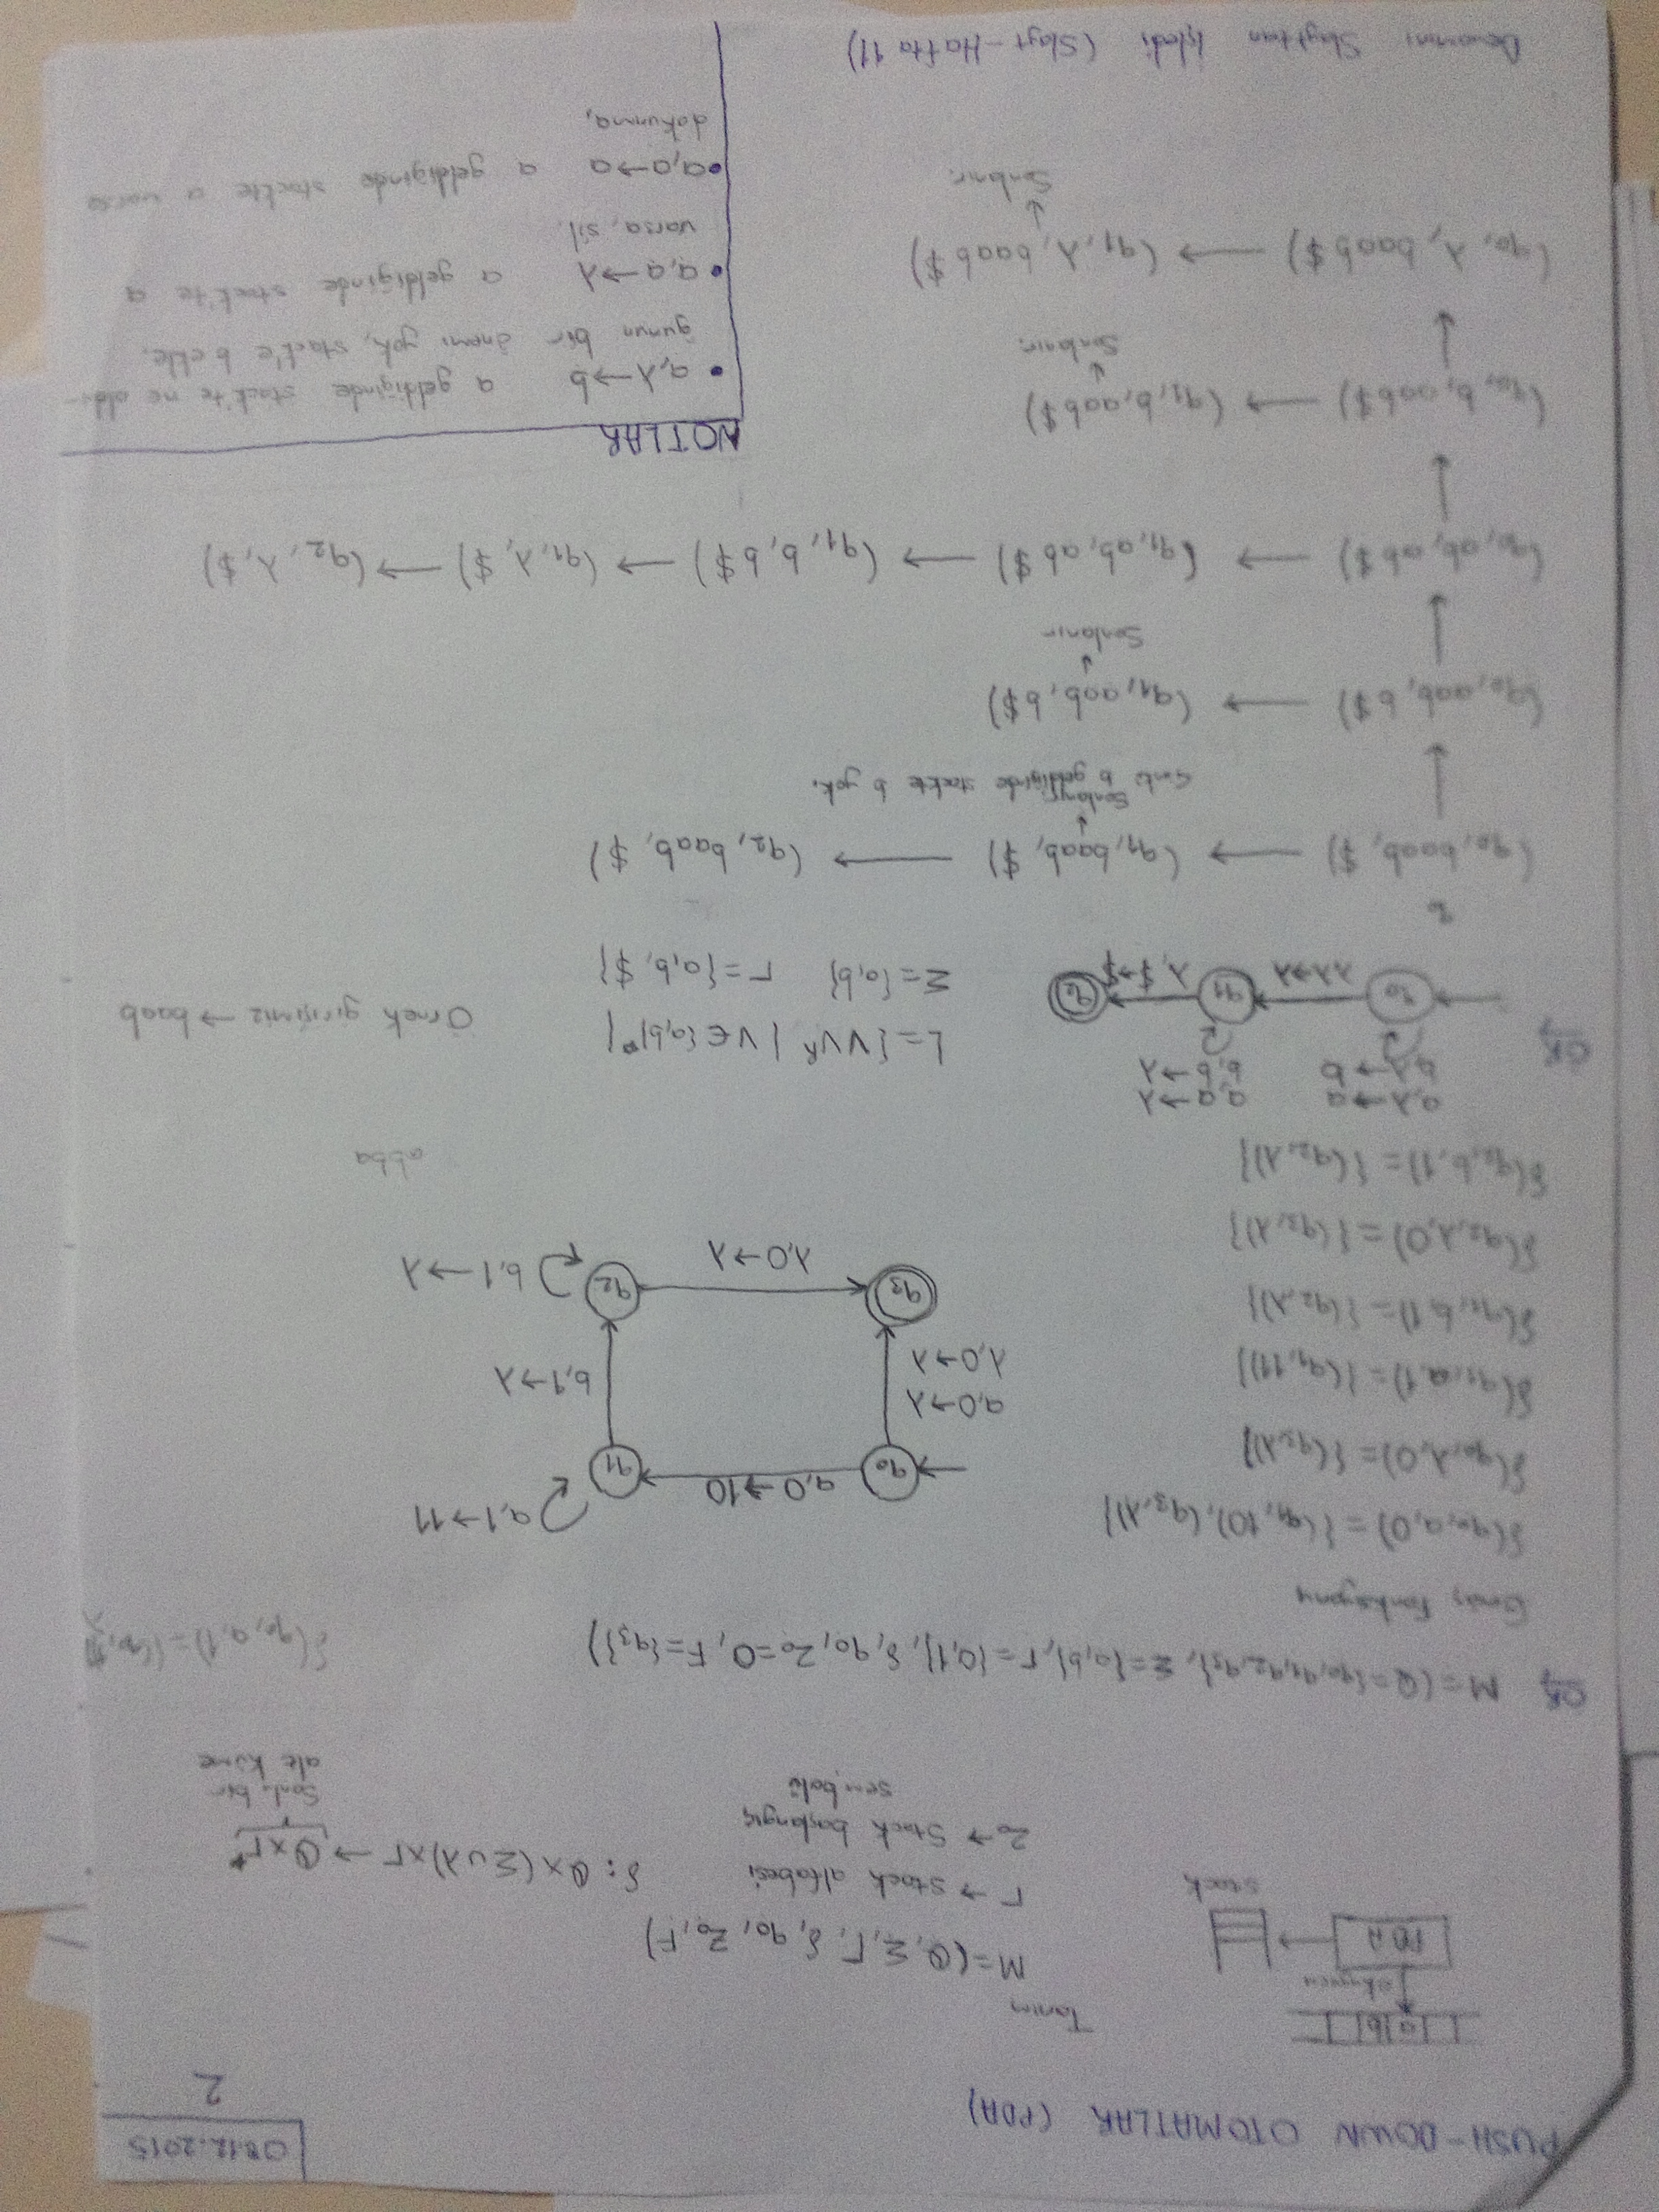 PUSH-DOWN OTOMATLAR (PDA)
08.12.2015
2
a b
okuyucu
PDA
stack
Tanım
M=(Q, Σ, Γ, δ, q0, Z0, F)
Γ → stack alfabesi
Z0 → Stack başlangıç
sembolü
δ: Q×(Σ∪λ)×Γ → Q×Γ*
Sonlu bir
alt küme
ÖR
M=(Q={q0,q1,q2,q3}, Σ={a,b}, Γ={0,1}, δ, q0, Z0=0, F={q3})
δ(q0,a,1)={(q0,
λ
Fonksiyonu
δ(q0,a,0)={(q1,10),(q3,λ)}
δ(q0,λ,0)={(q3,λ)}
δ(q1,a,1)={(q1,11)}
δ(q1,b,1)={(q2,λ)}
δ(q2,λ,0)={(q3,λ)}
δ(q2,b,1)={(q2,λ)}
a,1→11
q0
a,0→10
q1
a,0→λ
λ,0→λ
b,1→λ
q3
λ,0→λ
q2
b,1→λ
abba
ÖR
a,λ→a
b,λ→b
a,a→λ
b,b→λ
q0
λ,λ→λ
q1
λ,$→$
q2
L={VV^R | V∈{a,b}*}
Σ={a,b} Γ={a,b,$}
Örnek girişimiz → baab
q0
(q0, baab, $) → (q1, baab, $) → (q2, baab, $)
Sonlanır
Çünkü b geldiğinde stackte b yok.
(q0, aab, b$) → (q1, aab, b$)
Sonlanır
(q0, ab, ab$) → (q1, ab, ab$) → (q1, b, b$) → (q1, λ, $) → (q2, λ, $)
(q0, b, aab$) → (q1, b, aab$)
Sonlanır.
(q0, λ, baab$) → (q1, λ, baab$)
Sonlanır.
NOTLAR
• a,λ→b a geldiğinde stack'te ne oldu-
ğunun bir önemi yok, stack'e b ekle.
• a,a→λ a geldiğinde stack'te a
varsa, sil.
• a,a→a a geldiğinde stackte a varsa
dokunma,
Devamını Slayttan İşledi (Slayt-Hafta 11)